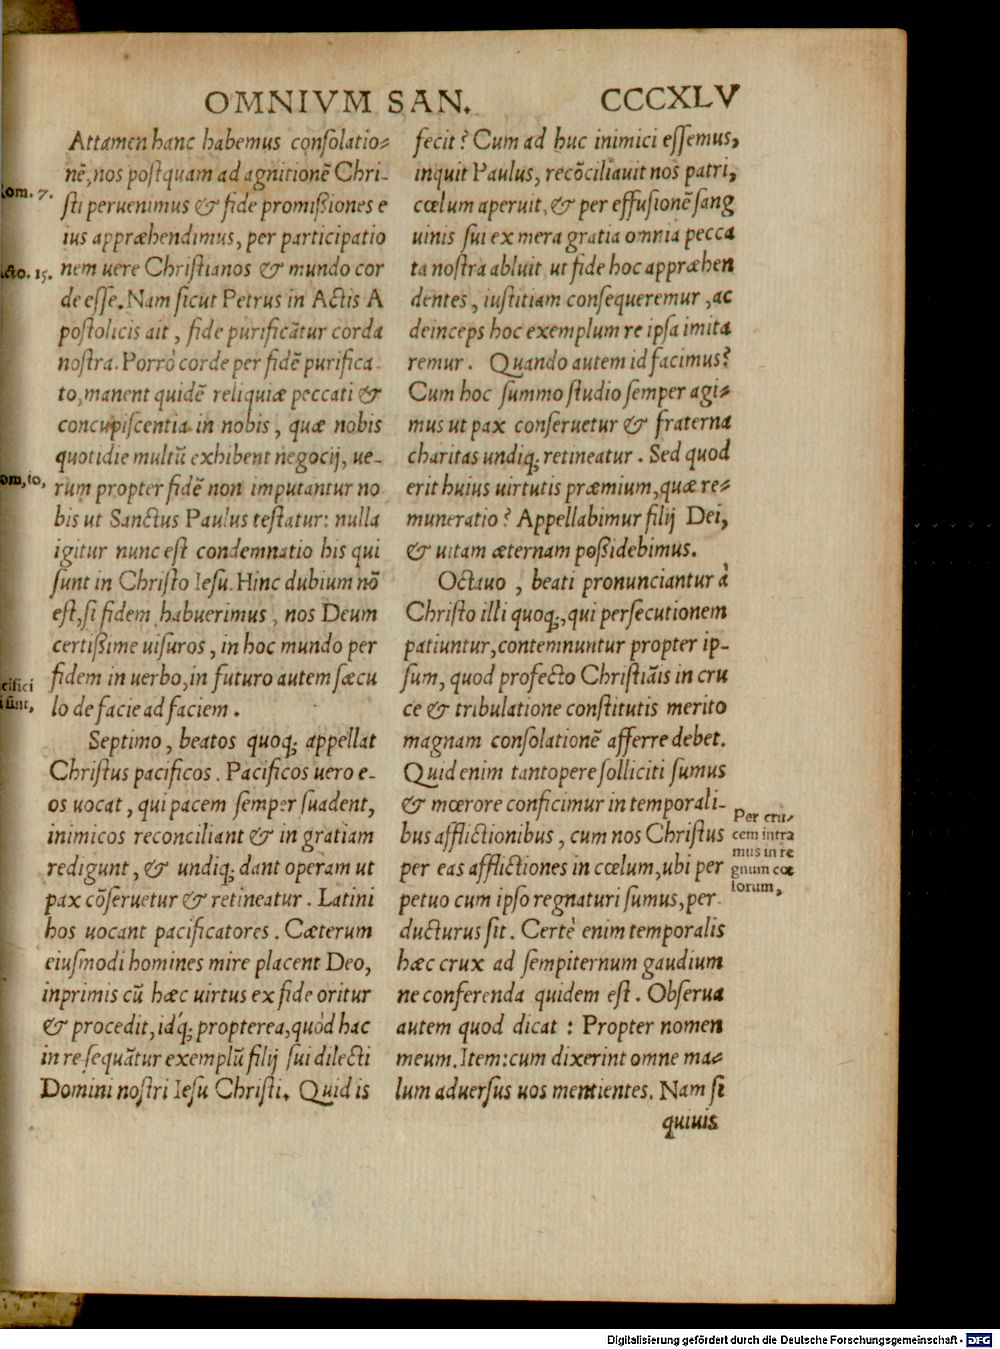 OMNIVM SAN. CCCXLV
Attamen hanc habemus conſolatio⸗
nē, nos poſtquam ad agnitionē Chri-
ſti peruenimus & fide promißiones e
ius appræhendimus, per participatio
nem uere Chriſtianos & mundo cor
de eſſe. Nam ſicut Petrus in Actis A
poſtolicis ait, fide purificātur corda
noſtra. Porrò corde per fidē purifica-
to, manent quidē reliquiæ peccati &
concupiſcentia in nobis, quæ nobis
quotidie multū exhibent negocij, ue-
rum propter fidē non imputantur no
bis ut Sanctus Paulus teſtatur: nulla
igitur nunc eſt condemnatio his qui
ſunt in Chriſto Ieſu. Hinc dubium nō
eſt, ſi fidem habuerimus, nos Deum
certißime uiſuros, in hoc mundo per
fidem in uerbo, in futuro autem ſæcu
lo de facie ad faciem.
Septimo, beatos quoq; appellat
Chriſtus pacificos. Pacificos uero e-
os uocat, qui pacem ſemper ſuadent,
inimicos reconciliant & in gratiam
redigunt, & undiq; dant operam ut
pax cōſeruetur & retineatur. Latini
hos uocant pacificatores. Cæterum
eiuſmodi homines mire placent Deo,
inprimis cū hæc uirtus ex fide oritur
& procedit, idq́; propterea, quòd hac
in re ſequātur exemplū filij ſui dilecti
Domini noſtri Ieſu Chriſti. Quid is
om. 7.
cto. 15.
om, 10,
cifici
i ſint,
fecit? Cum ad huc inimici eſſemus,
inquit Paulus, recōciliauit nos patri,
cœlum aperuit, & per effuſionē ſang
uinis ſui ex mera gratia omnia pecca
ta noſtra abluit ut fide hoc appræhen
dentes, iuſtitiam conſequeremur, ac
deinceps hoc exemplum re ipſa imita
remur. Quando autem id facimus?
Cum hoc ſummo ſtudio ſemper agi⸗
mus ut pax conſeruetur & fraterna
charitas undiq; retineatur. Sed quod
erit huius uirtutis præmium, quæ re⸗
muneratio? Appellabimur filij Dei,
& uitam æternam poßidebimus.
Octauo, beati pronunciantur à
Chriſto illi quoq;, qui perſecutionem
patiuntur, contemnuntur propter ip-
ſum, quod profecto Chriſtiāis in cru
ce & tribulatione conſtitutis merito
magnam conſolationē afferre debet.
Quid enim tantopere ſolliciti ſumus
& mœrore conficimur in temporali-
bus afflictionibus, cum nos Chriſtus
per eas afflictiones in cœlum, ubi per
petuo cum ipſo regnaturi ſumus, per-
ducturus ſit. Certè enim temporalis
hæc crux ad ſempiternum gaudium
ne conferenda quidem eſt. Obſerua
autem quod dicat: Propter nomen
meum. Item: cum dixerint omne ma⸗
lum aduerſus uos mentientes. Nam ſi
quiuis
Per cru⸗
cem intra
mus in re
gnum cœ
lorum,
Digitalisierung gefördert durch die Deutsche Forschungsgemeinschaft - DFG